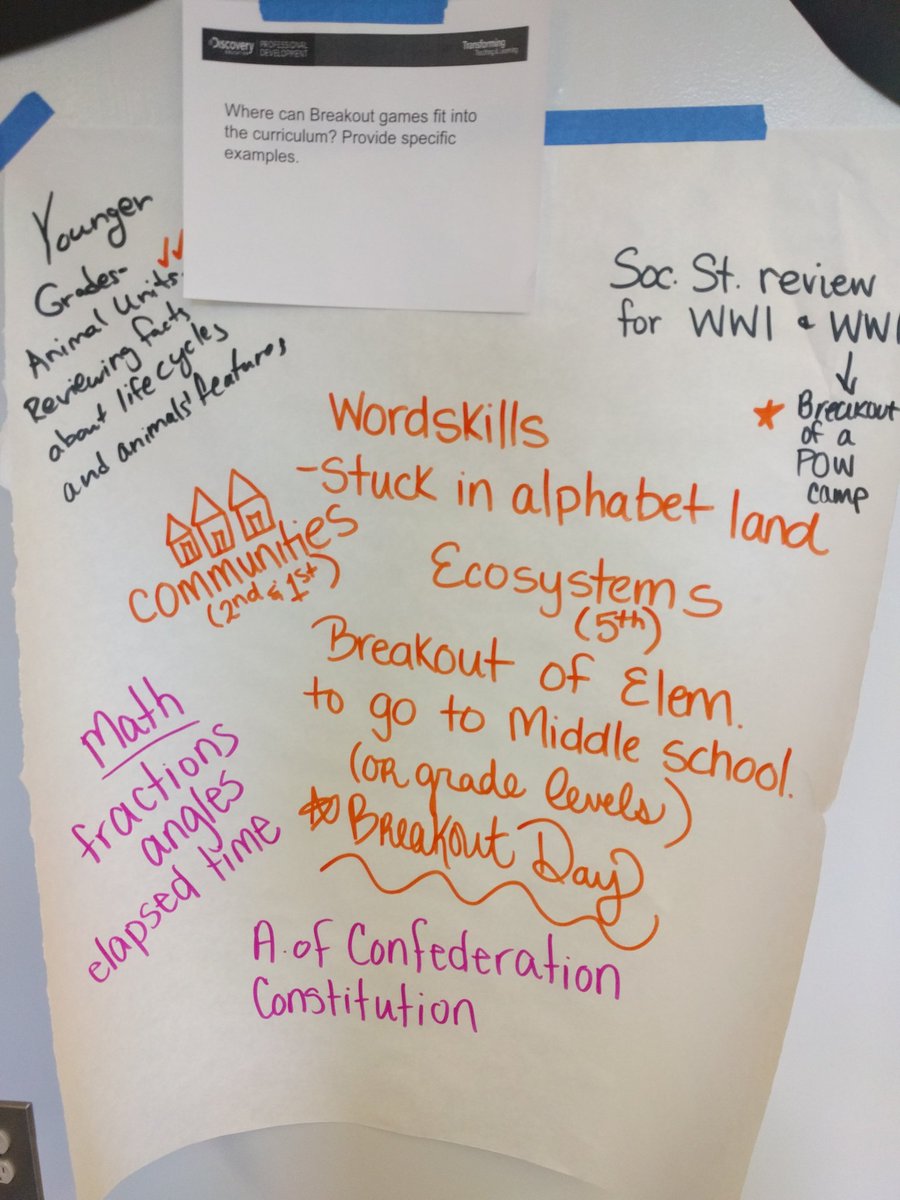 Discovery EDUCATION PROFESSIONAL DEVELOPMENT
Transforming
Teaching & Learning
Where can Breakout games fit into
the curriculum? Provide specific
examples.
Younger
Grades-
Animal Units-
Reviewing facts
about life cycles
and animals' features
Soc. St. review
for WWI & WWI
Breakout
of a
POW
camp
Wordskills
-Stuck in alphabet land
Communities
(2nd & 1st)
Ecosystems
(5th)
Breakout of Elem.
to go to Middle school.
(or grade levels)
Breakout Day
Math
fractions
angles
elapsed time
A. of Confederation
Constitution